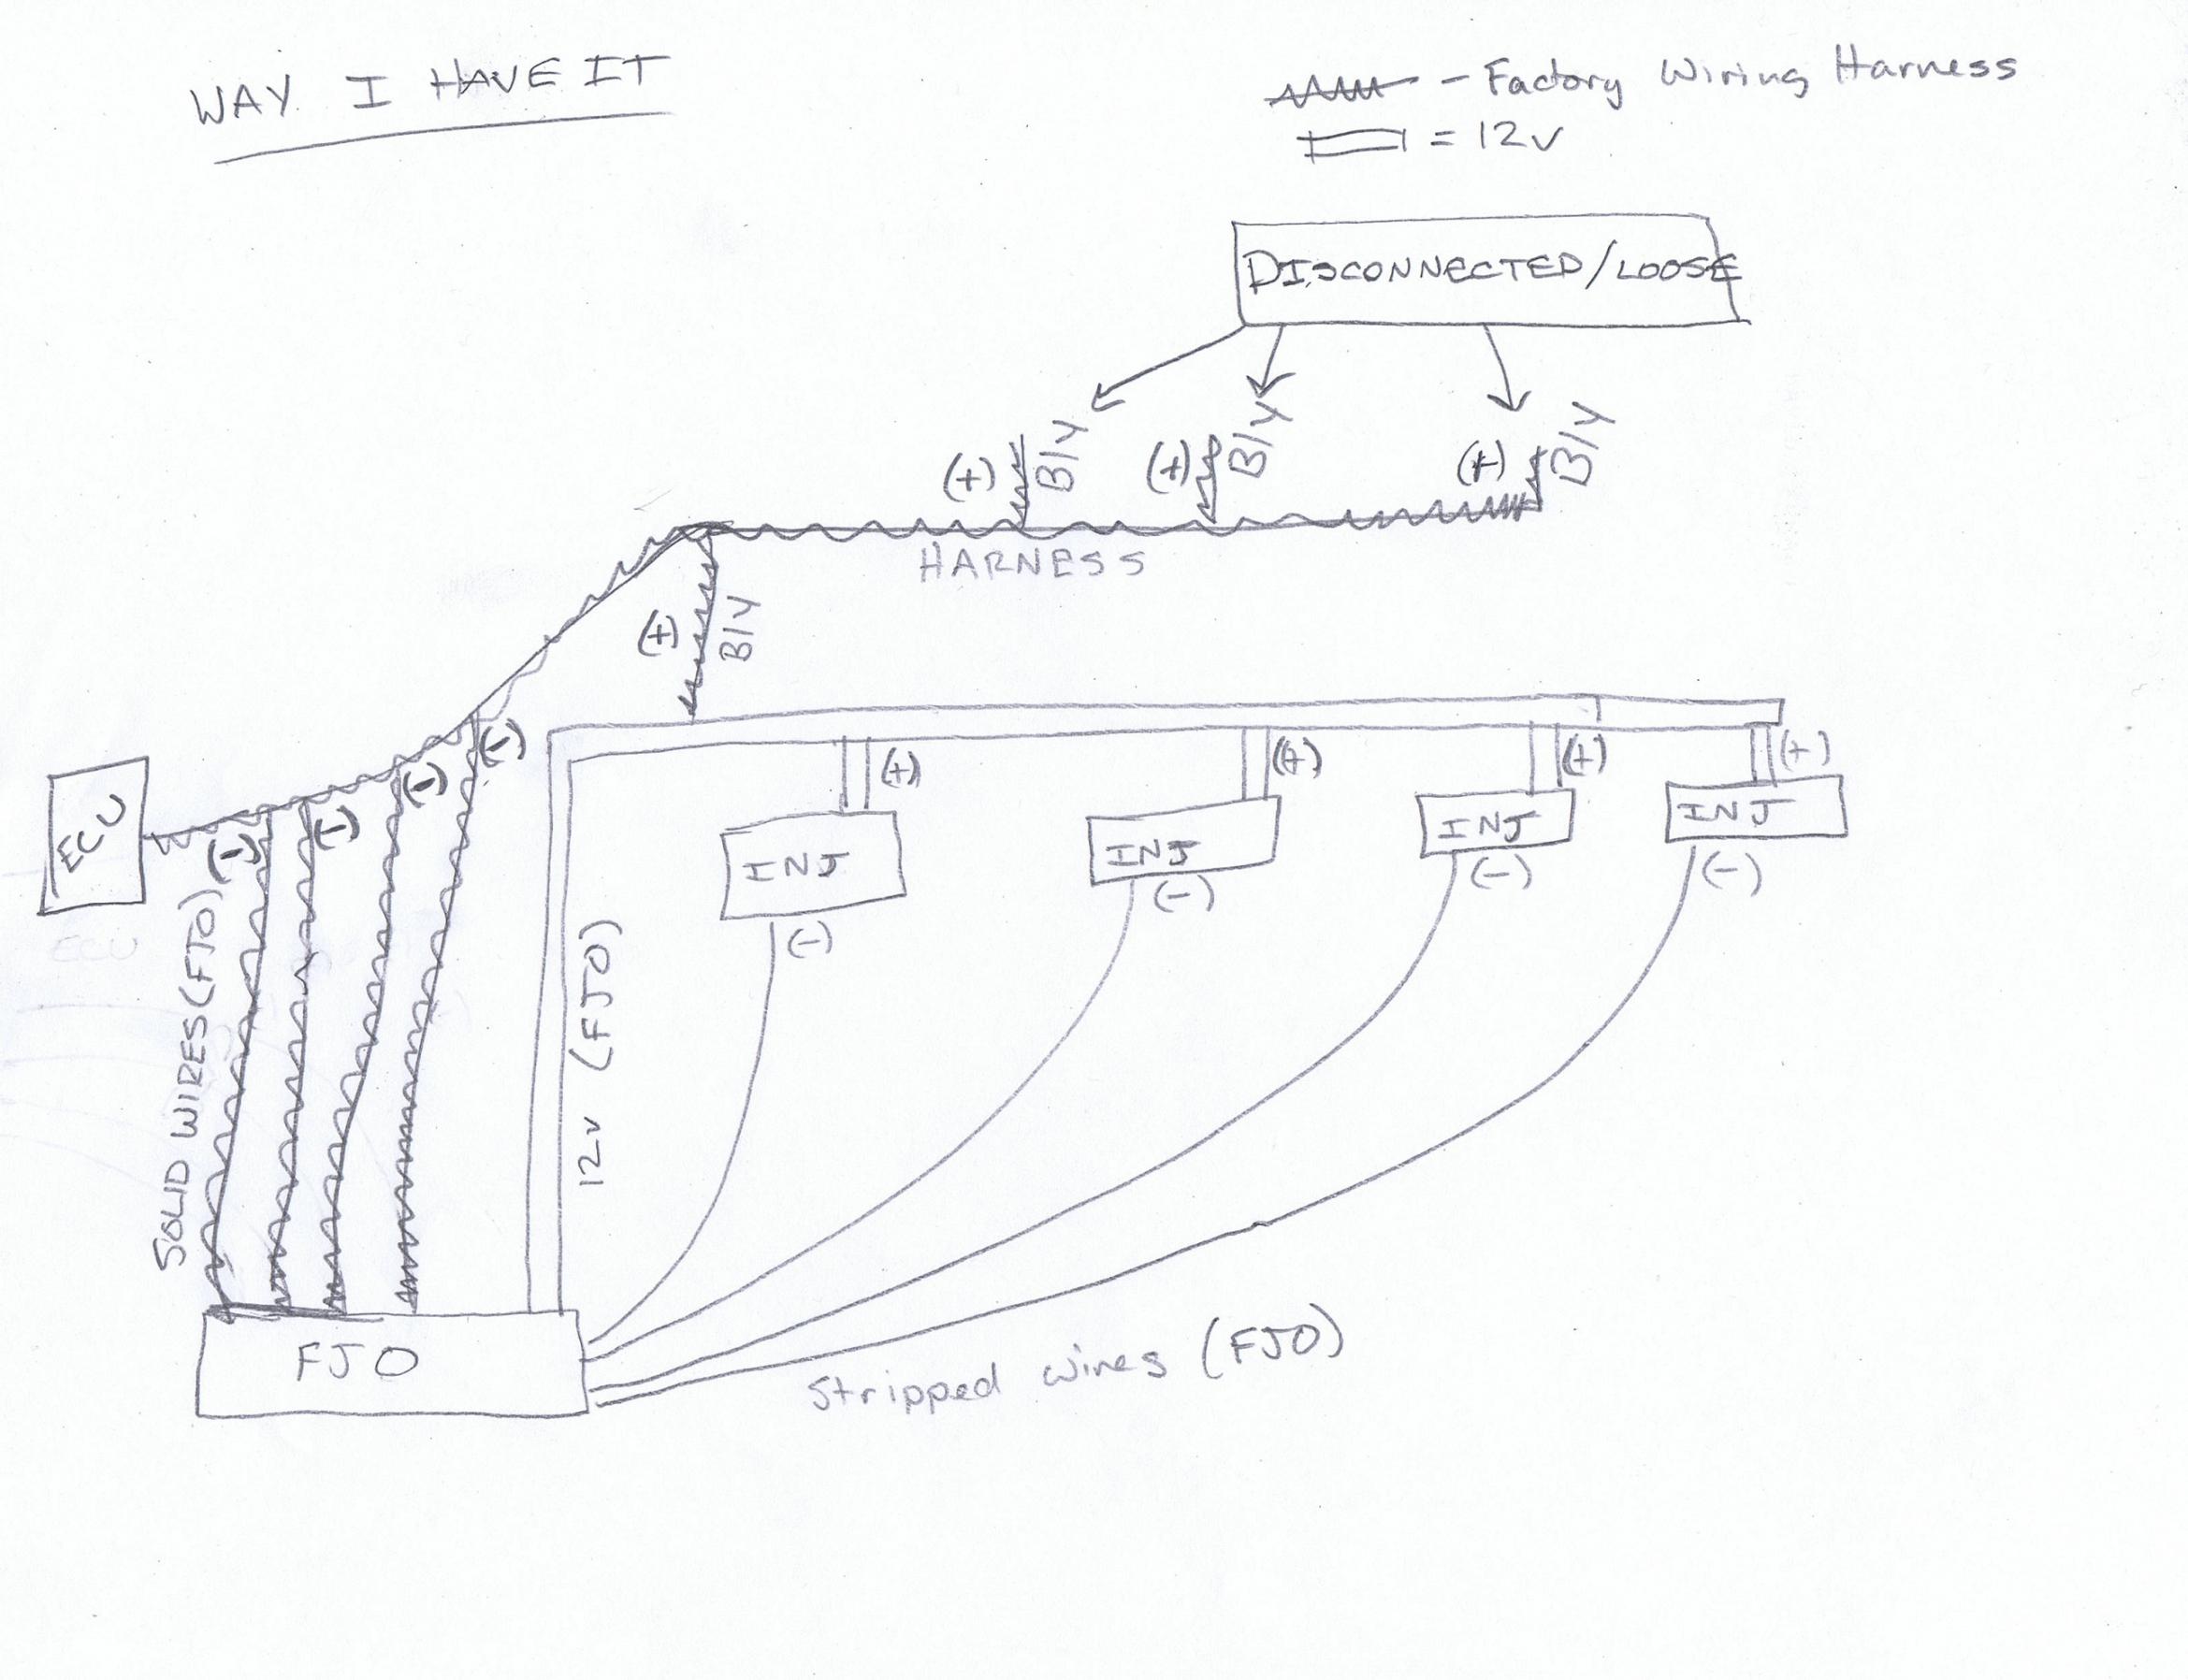 WAY I HAVE IT
- Factory Wiring Harness
= 12v
DISCONNECTED/LOOSE
(+) B/Y
(+) B/Y
(+) B/Y
HARNESS
(+) B/Y
ECU
(-)
(-)
(-)
(-)
(+)
(+)
(+)
(+)
INJ
INJ
INJ
INJ
(-)
(-)
(-)
(-)
ECU
SOLID WIRES (FJO)
12v (FJO)
FJO
Stripped wires (FJO)